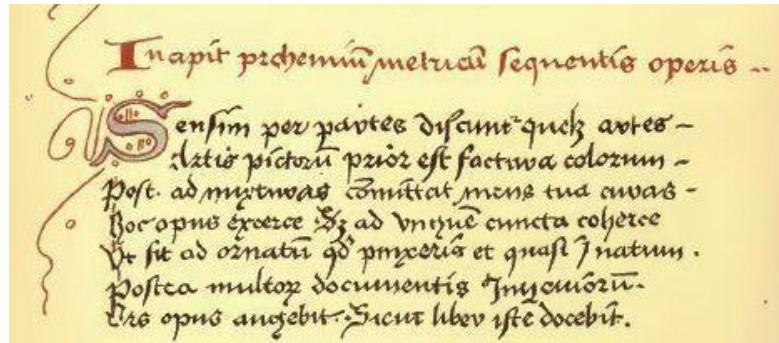 Incipit prohemiū metricū sequentis operis ..
Sensim per partes discunt᷑ quelꝫ artes –
Artis pictorū prior est factura colorum –
Post. ad mixturas cōuittat mens tua curas –
Hoc opus exerce Sꝫ ad vnguē cuncta coherce
Vt sit ad ornatū qd̄ pinxeris et quasi Jnatum .
Postea multoꝝ documentis Jngeniorū.
Ars opus augebit. Sicut liber iste docebit.